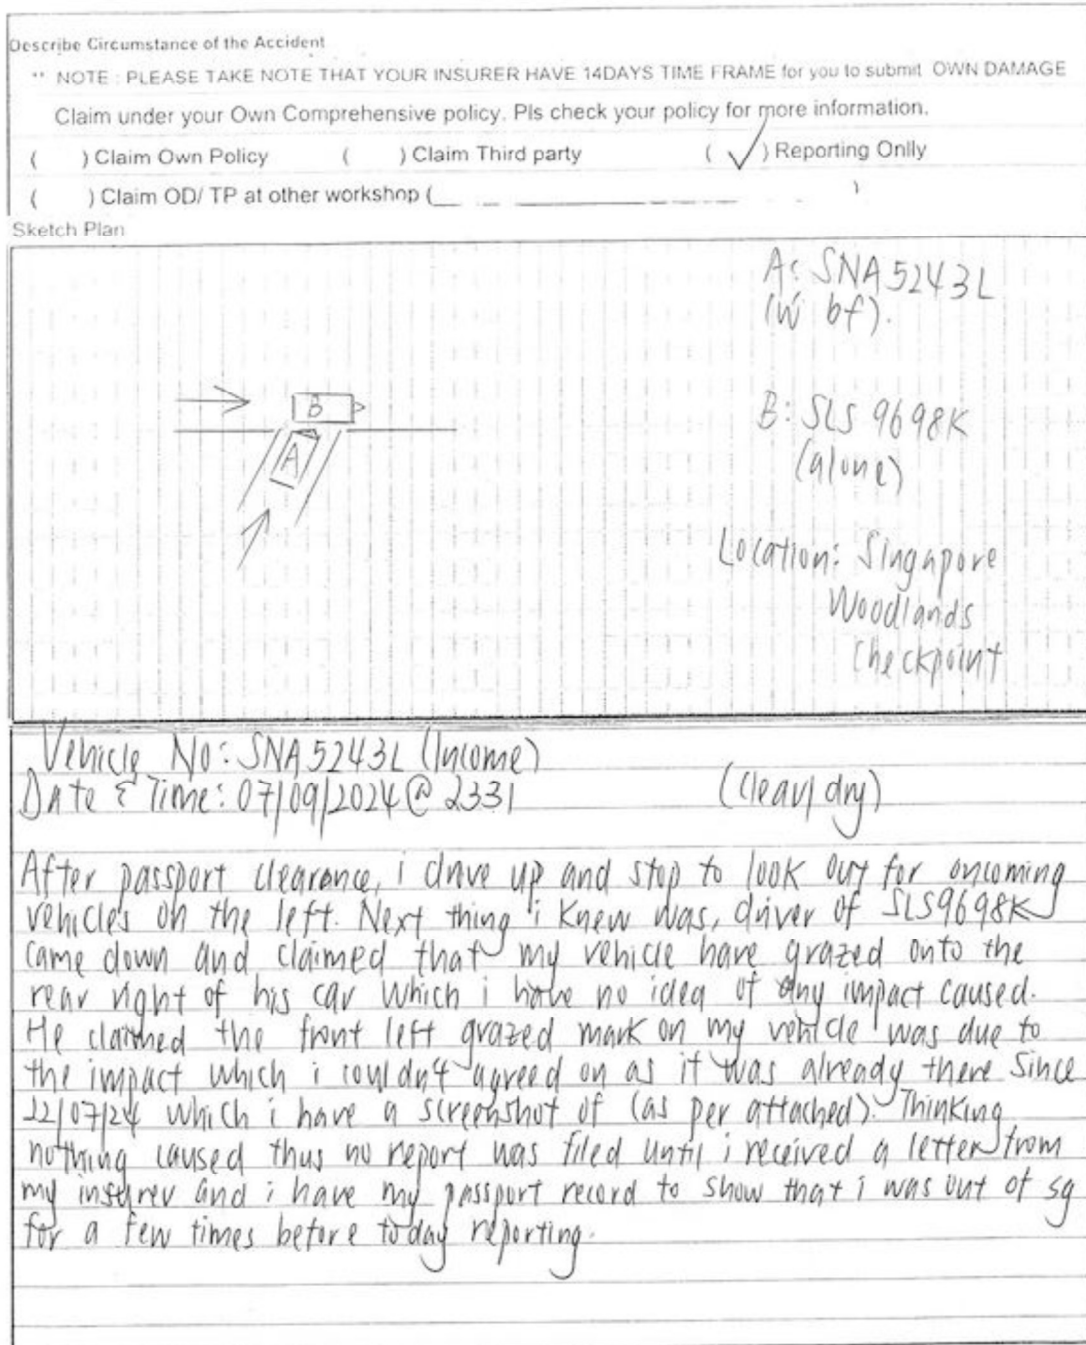 Describe Circumstance of the Accident
** NOTE : PLEASE TAKE NOTE THAT YOUR INSURER HAVE 14DAYS TIME FRAME for you to submit OWN DAMAGE
Claim under your Own Comprehensive policy. Pls check your policy for more information.
( ) Claim Own Policy ( ) Claim Third party ( ✓ ) Reporting Onlly
( ) Claim OD/ TP at other workshop ( )
Sketch Plan
A: SNA 5243L
(w bf).
B
A
B: SLS 9698K
(alone)
Location: Singapore
Woodlands
Checkpoint
Vehicle No: SNA 5243L (Income)
Date & Time: 07/09/2024 @ 2331 (Clear/ dry)
After passport clearance, i drive up and stop to look out for oncoming
vehicles on the left. Next thing i knew was, driver of SLS9698K
came down and claimed that my vehicle have grazed onto the
rear right of his car which i have no idea of any impact caused.
He claimed the front left grazed mark on my vehicle was due to
the impact which i couldn't agreed on as it was already there since
22/07/24 which i have a screenshot of (as per attached). Thinking
nothing caused thus no report was filed until i received a letter from
my insurer and i have my passport record to show that i was out of sg
for a few times before today reporting.